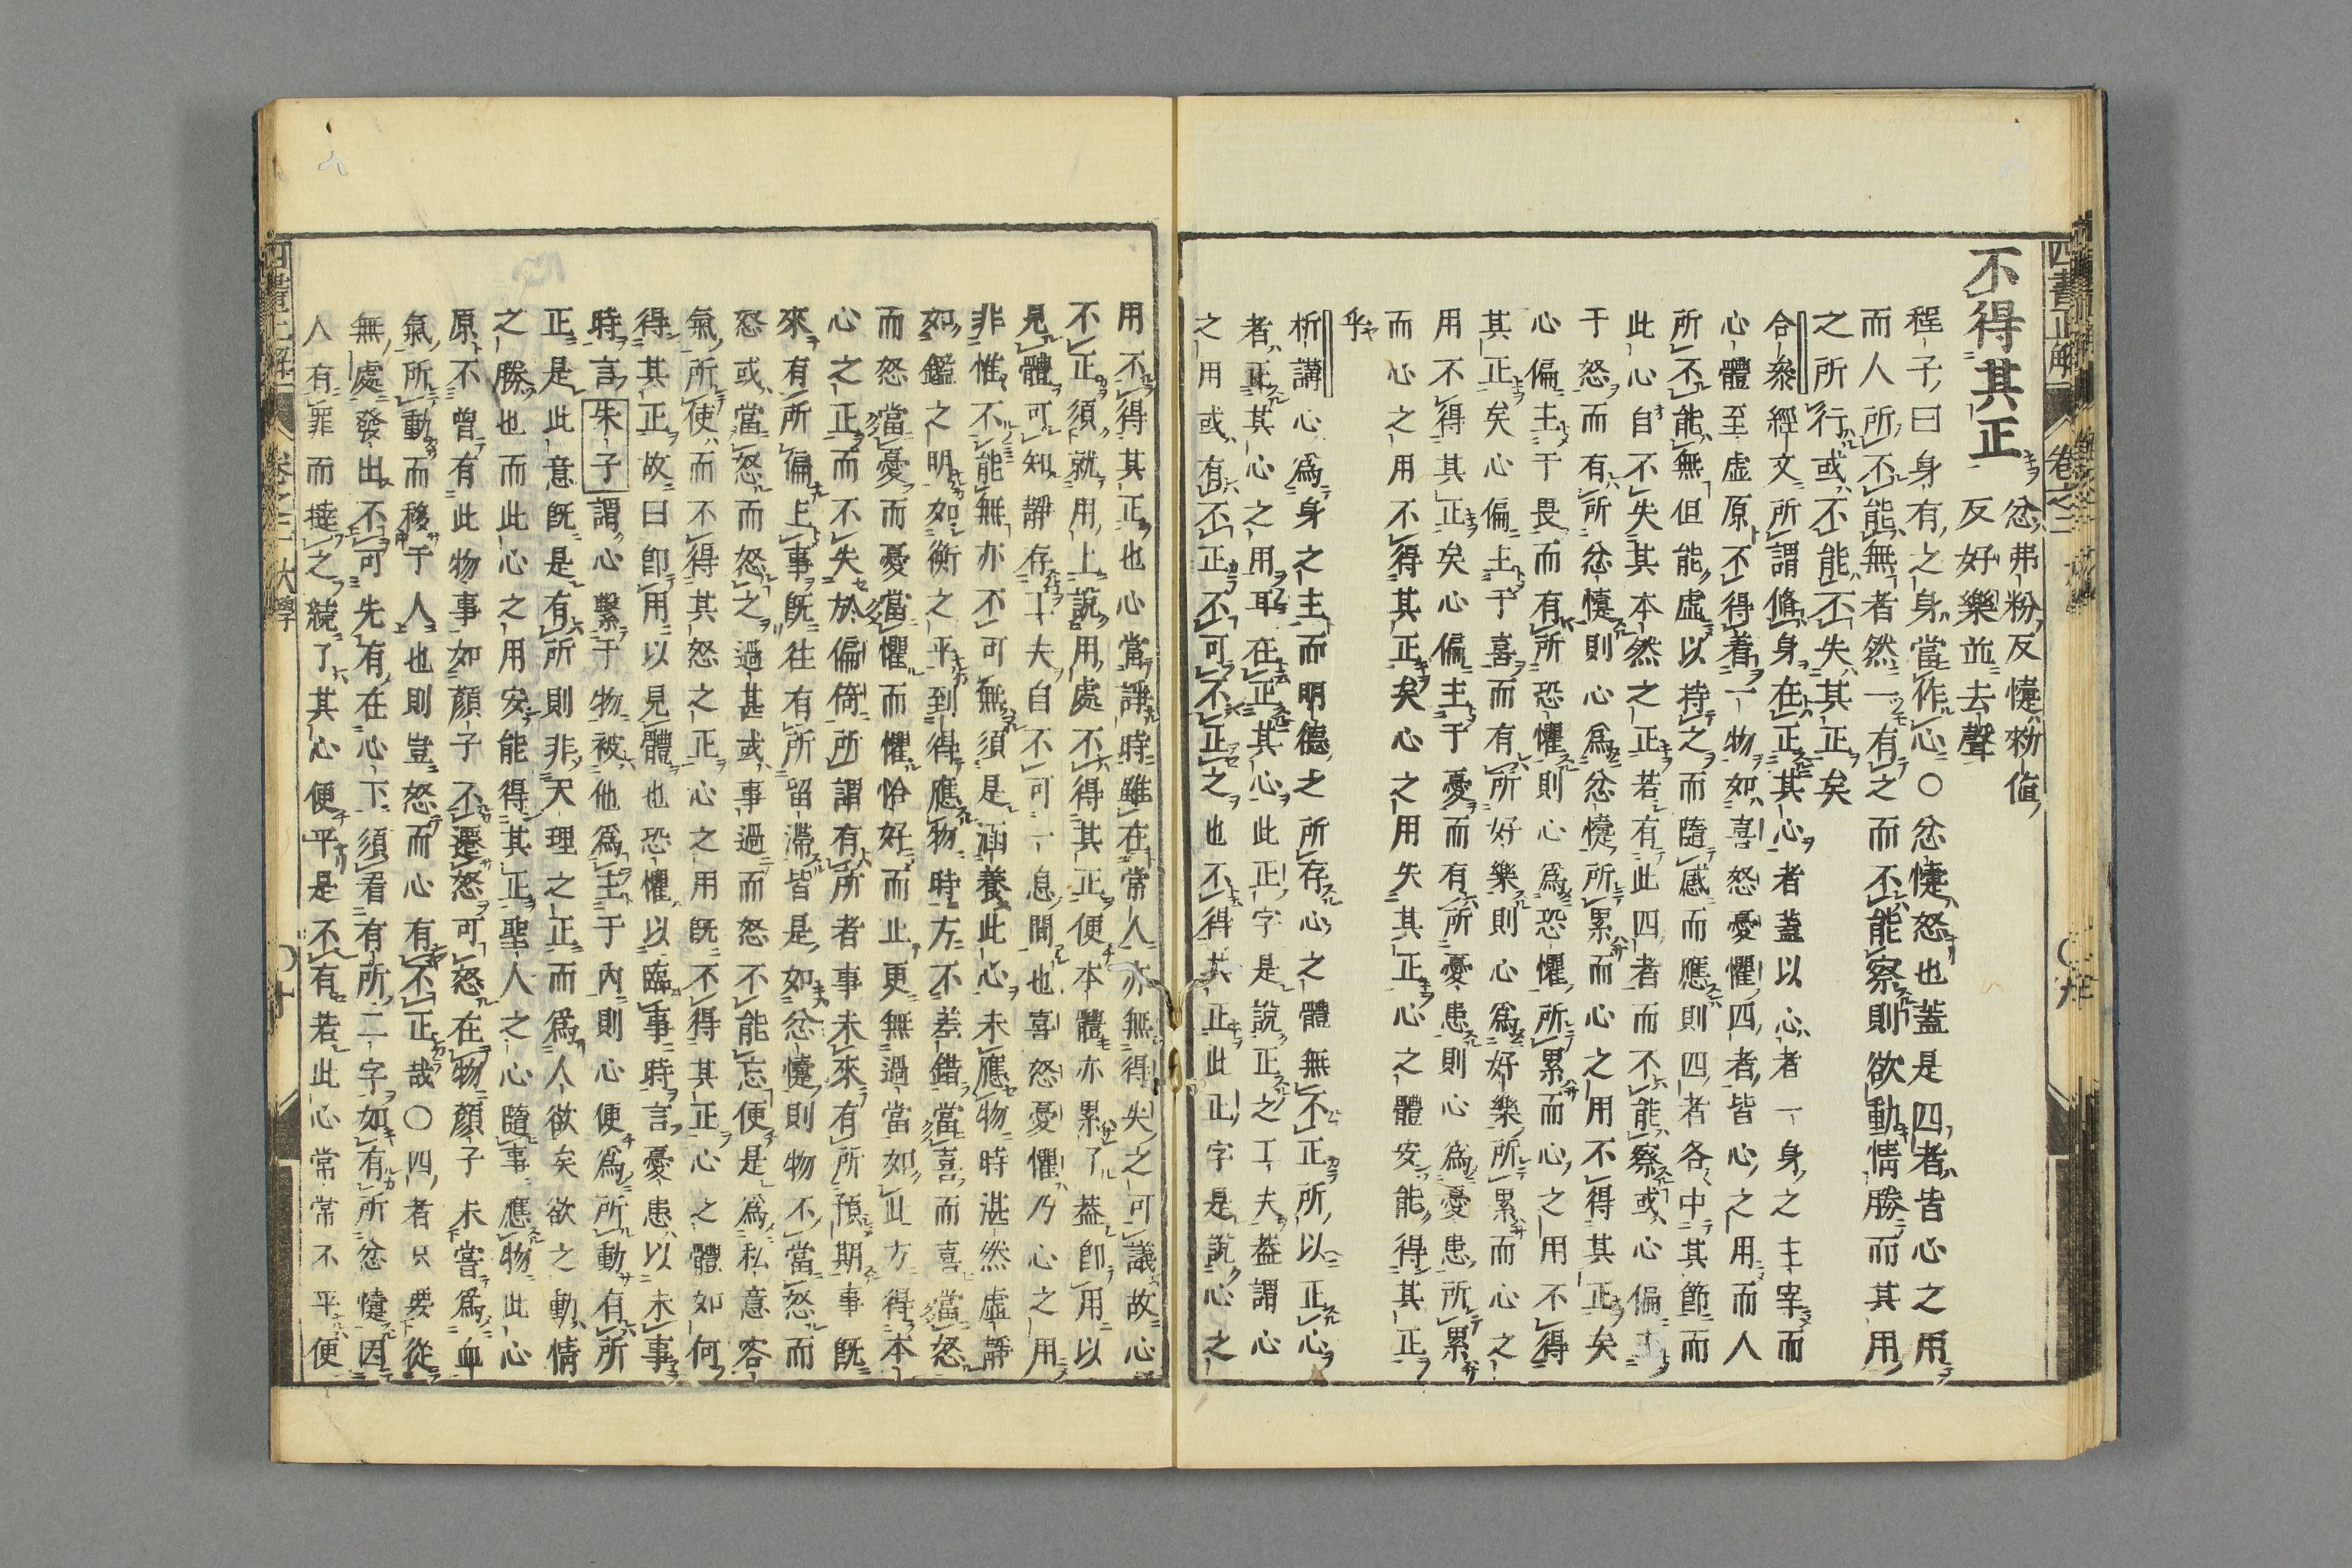 四書正解
卷之二
不得其正
忿弗粉反懥敕値
反好樂並去聲
程子曰身有之身當作心〇忿懥怒也蓋是四者皆心之用
而人所不能無者然一有之而不能察則欲動情勝而其用
之所行或不能不失其正矣
合叅經文所謂脩身在正其心者蓋以心者一身之主宰而
心體至虛原不得着一物如喜怒憂懼四者皆心之用而人
所不能無但能虛以持之而隨感而應則四者各中其節而
此心自不失其本然之正若有此四者而不能察或心偏主
于怒而有所忿懥則心爲忿懥所累而心之用不得其正矣
心偏主于畏而有所恐懼則心爲恐懼所累而心之用不得
其正矣心偏主于喜而有所好樂則心爲好樂所累而心之
用不得其正矣心偏主于憂而有所憂患則心爲憂患所累
而心之用不得其正矣心之用失其正心之體安能得其正
乎
析講心爲身之主而明德之所存心之體無不正所以正心
者正其心之用耳在正其心此正字是說正之工夫葢謂心
之用或有不正不可不正之也不得其正此正字是說心之
用不得其正也心當諍時雖在常人亦無得失之可議故心
不正須就用上說用處不得其正便本體亦累了葢卽用以
見體可知靜存工夫自不可一息間也喜怒憂懼乃心之用
非惟不能無亦不可無須是涵養此心未應物時湛然虛靜
如鑑之明如衡之平到得應物時方不差錯當喜而喜當怒
而怒當憂而憂當懼而懼恰好而止更無過當如此方得本
心之正而不失於偏倚所謂有所者事未來有所預期事既
來有所偏上事既往有所留滯皆是如忿懥則物不當怒而
怒或當怒而怒之過甚或事過而怒不能忘便是爲私意客
氣所使而不得其怒之正心之用既不得其正心之體如何
得其正故曰卽用以見體也恐懼以臨事時言憂患以未事
時言朱子謂心繫于物被他爲主于內則心便爲所動有所
正是此意旣是有所則非天理之正而爲人欲矣欲之動情
之勝也而此心之用安能得其正聖人之心隨事應物此心
原不曾有此物事如顏子不遷怒可怒在物顏子未嘗爲血
氣所動而移于人也則豈怒而心有不正哉〇四者只要從
無處發出不可先有在心下須看有所二字如有所忿懥因
人有罪而撻之纔了其心便平是不有若此心常常不平便
卷之二 大學